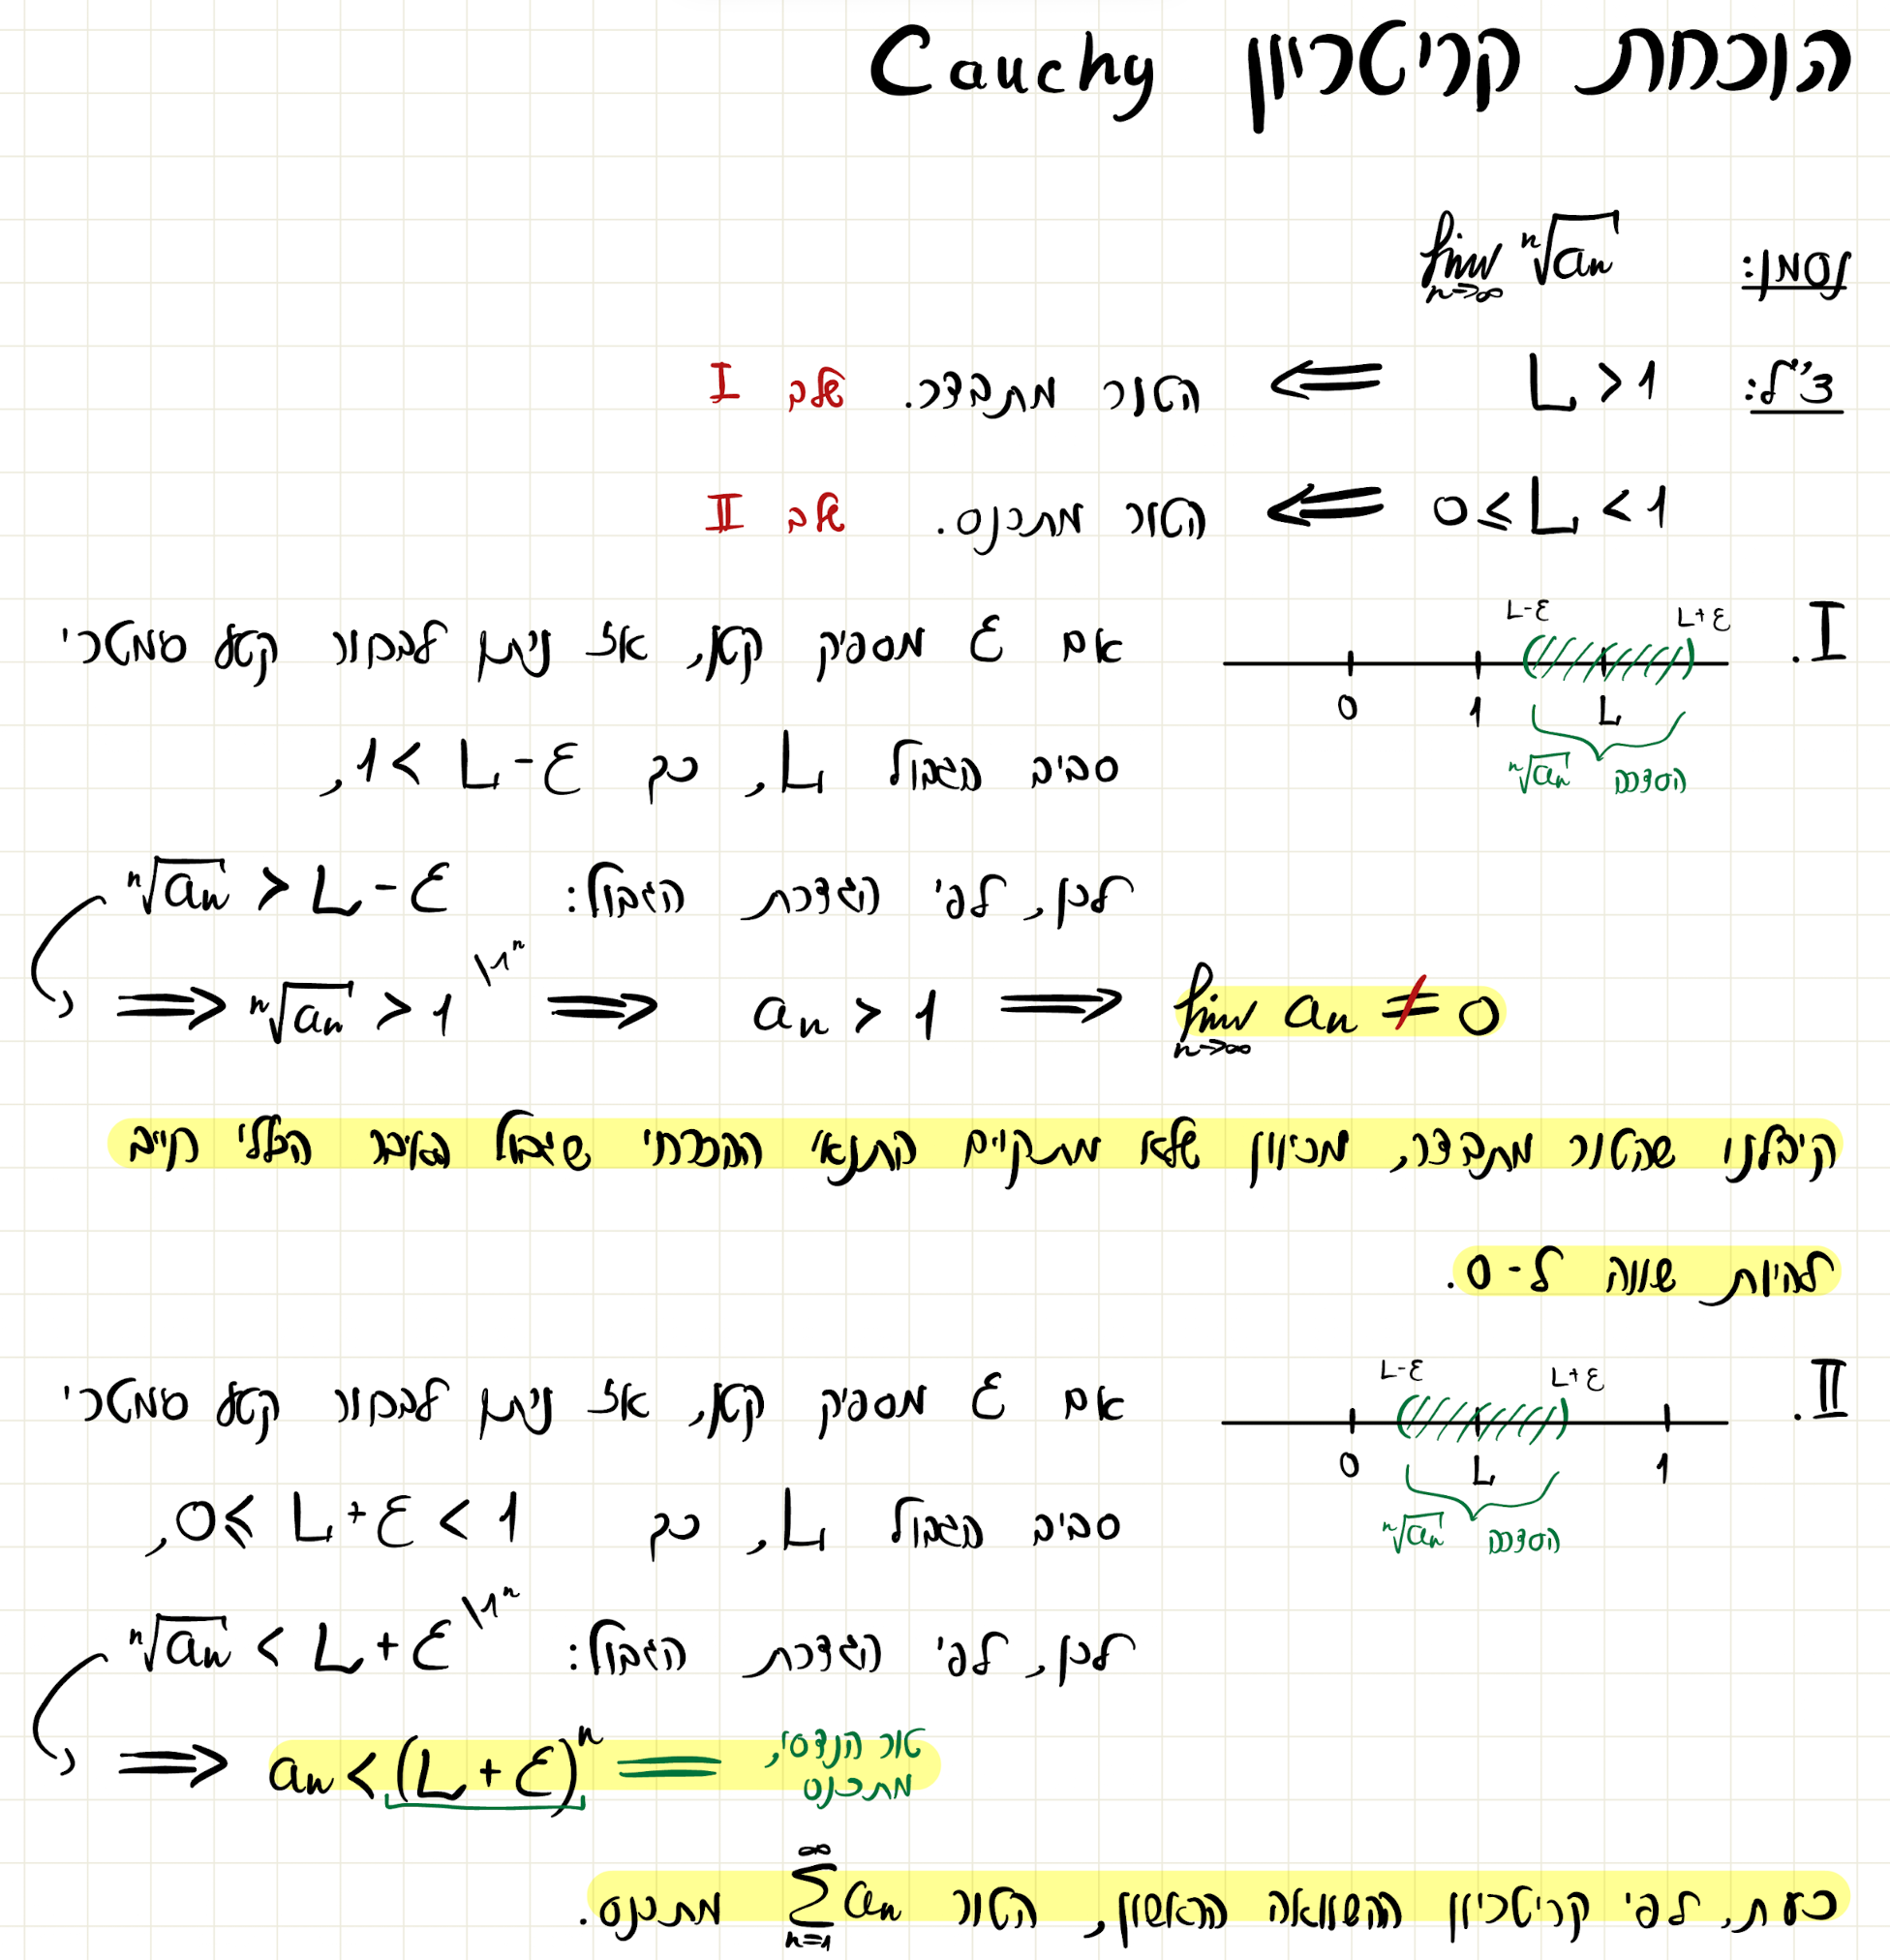 הוכחת קריטריון Cauchy
נסמן: lim n→∞ ⁿ√an
צ״ל: L > 1 ⟸ הטור מתבדר. שלב I
0 ≤ L < 1 ⟸ הטור מתכנס. שלב II
I. אם ε מספיק קטן, אז ניתן לבחור קטע סימטרי
L-ε L+ε
0 1 L
סביב הגבול L, כך 1 < L-ε,
הסדרה ⁿ√an
לכן, לפי הגדרת הגבול: ⁿ√an > L-ε
⟹ ⁿ√an > 1 |^n ⟹ an > 1 ⟹ lim n→∞ an ≠ 0
קיבלנו שהטור מתבדר, מכיוון שלא מתקיים התנאי ההכרחי שגבול האיבר הכללי חייב
להיות שווה ל-0.
II. אם ε מספיק קטן, אז ניתן לבחור קטע סימטרי
L-ε L+ε
0 L 1
סביב הגבול L, כך 0 ≤ L+ε < 1,
הסדרה ⁿ√an
לכן, לפי הגדרת הגבול: ⁿ√an < L+ε |^n
⟹ an < (L+ε)^n = טור הנדסי,
מתכנס
כעת, לפי קריטריון ההשוואה הראשון, הטור ∑ n=1 ∞ an מתכנס.